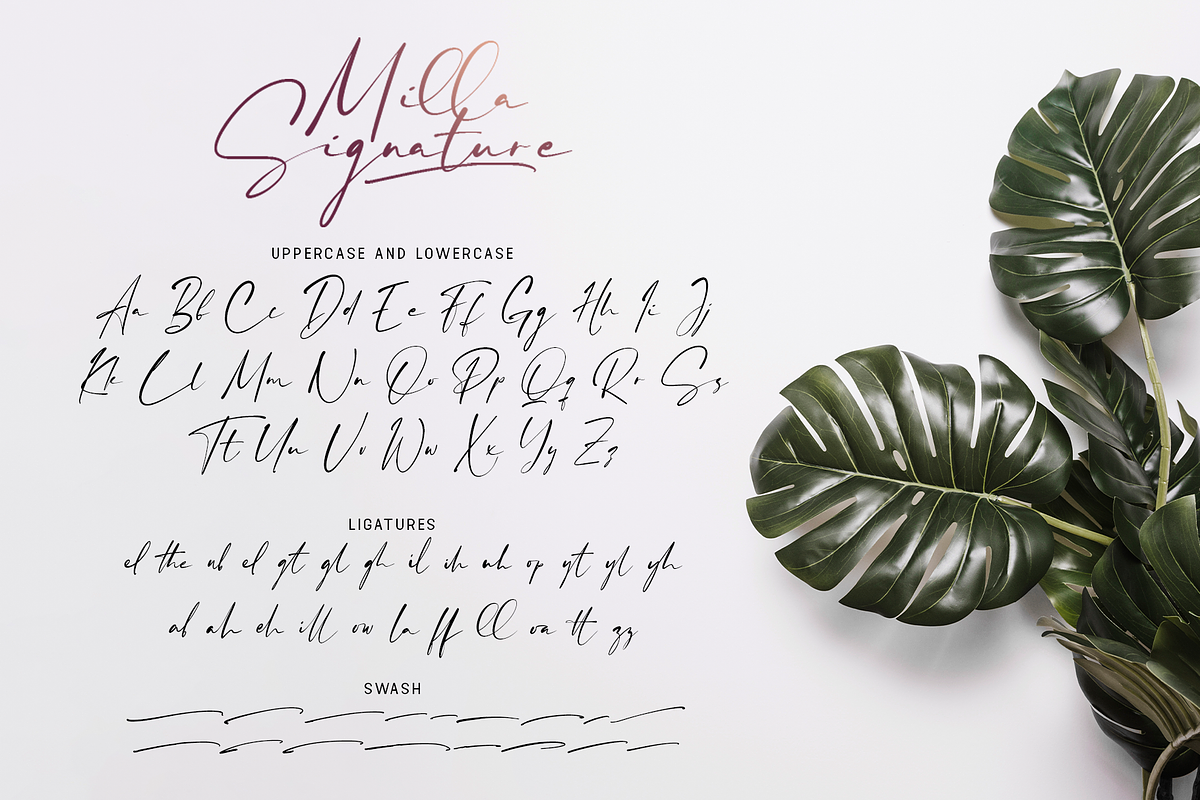 Milla
Signature
UPPERCASE AND LOWERCASE
Aa Bb Cc Dd Ee Ff Gg Hh Ii Jj
Kk Ll Mm Nn Oo Pp Qq Rr Ss
Tt Uu Vv Ww Xx Yy Zz
LIGATURES
el the ub el gt gl gh il ih uh op yt yl yh
ab ah eh ill ow la ff ll oa tt zz
SWASH